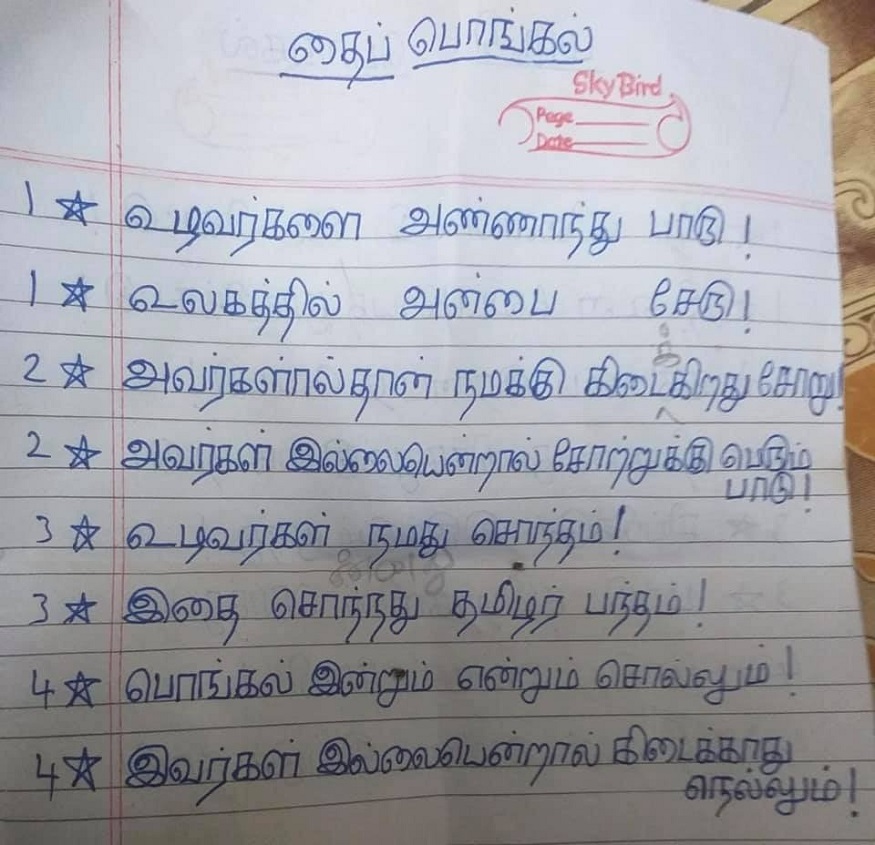 தைப் பொங்கல்
SkyBird
Page
Date
1 ☆ உழவர்களை அண்ணாந்து பாடு!
1 ☆ உலகத்தில் அன்பை சேடு!
2 ☆ அவர்கள்ால்தான் நமக்கு கிடைக்கிறது சோறு!
2 ☆ அவர்கள் இல்லையென்றால் சோற்றுக்கு பெடும்
பாடு!
3 ☆ உழவர்கள் நமது சொந்தம்!
3 ☆ இதை சொந்நது தமிழர் பந்தம்!
4 ☆ பொங்கல் இன்றும் என்றும் சொல்லும்!
4 ☆ இவர்கள் இல்லையென்றால் கிடைக்காது
நெல்லும்!